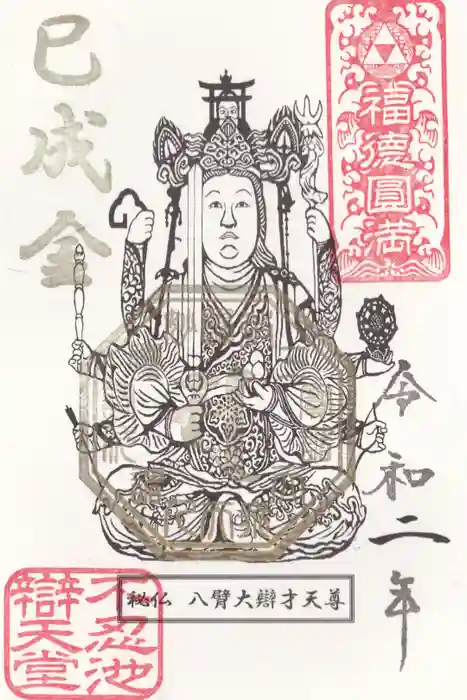 巳成金
福徳圓満
令和二年
秘仏 八臂大辯才天尊
不忍池
辯天堂